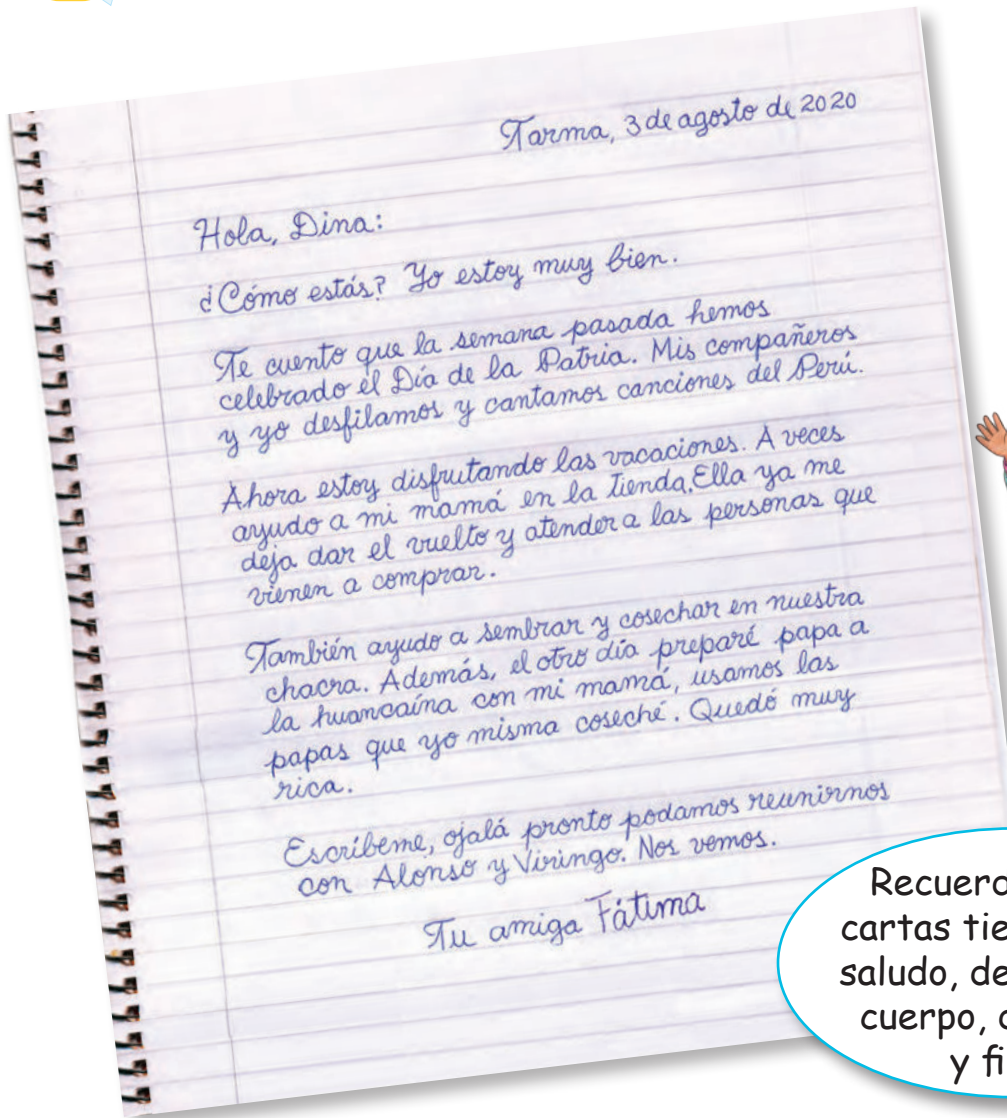 Tarma, 3 de agosto de 2020
Hola, Dina:
¿Cómo estás? Yo estoy muy bien.
Te cuento que la semana pasada hemos
celebrado el Día de la Patria. Mis compañeros
y yo desfilamos y cantamos canciones del Perú.
Ahora estoy disfrutando las vacaciones. A veces
ayudo a mi mamá en la tienda. Ella ya me
deja dar el vuelto y atender a las personas que
vienen a comprar.
También ayudo a sembrar y cosechar en nuestra
chacra. Además, el otro día preparé papa a
la huancaína con mi mamá, usamos las
papas que yo misma coseché. Quedó muy
rica.
Escríbeme, ojalá pronto podamos reunirnos
con Alonso y Viringo. Nos vemos.
Tu amiga Fátima
cartas
saludo,
cuerpo,
y